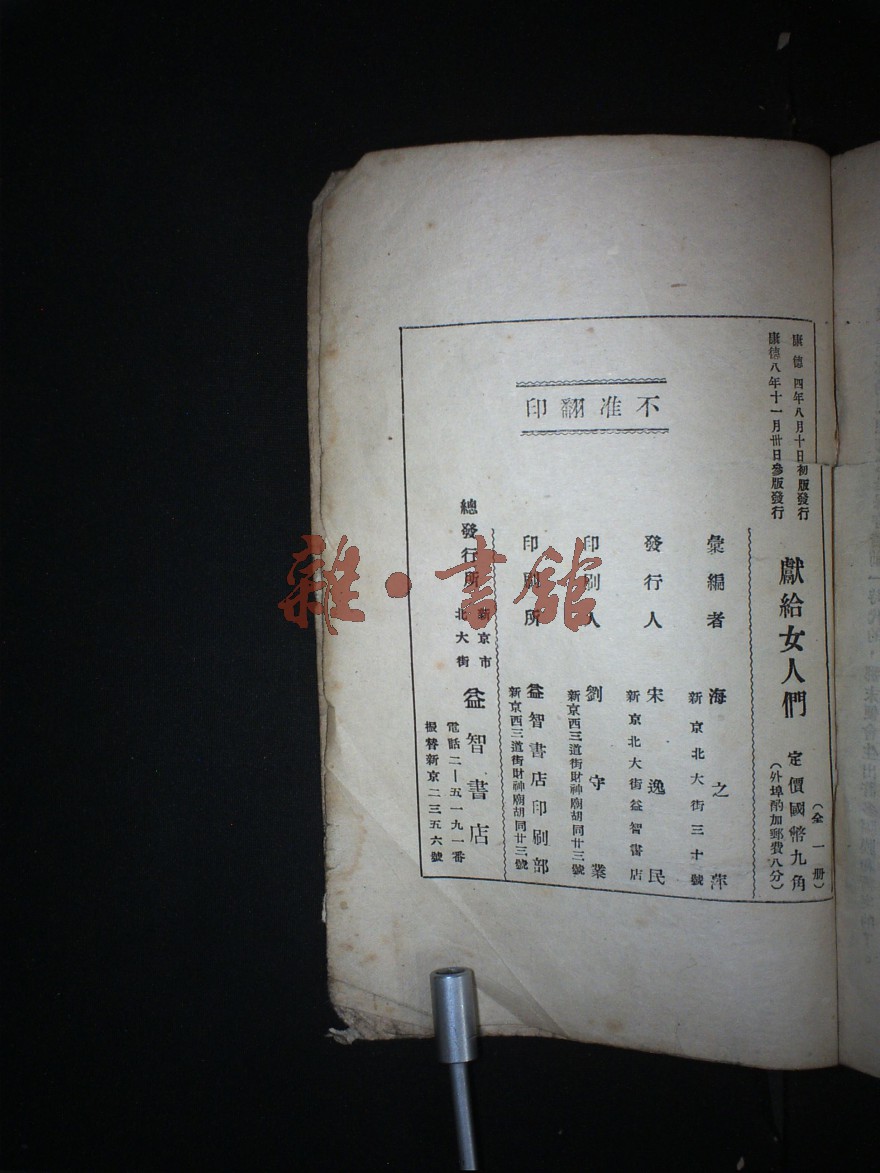 康德四年八月十日初版發行
康德八年十一月卅日參版發行
獻給女人們
（全一册）
定價國幣九角
（外埠酌加郵費八分）
彙編者 海之萍
新京北大街三十號
發行人 宋逸民
新京北大街益智書店
印刷人 劉守業
新京西三道街財神廟胡同廿三號
印刷所 益智書店印刷部
新京西三道街財神廟胡同廿三號
總發行所 新京市北大街 益智書店
電話二—五一九一番
振替新京二三五六號
不准翻印
雜·書館